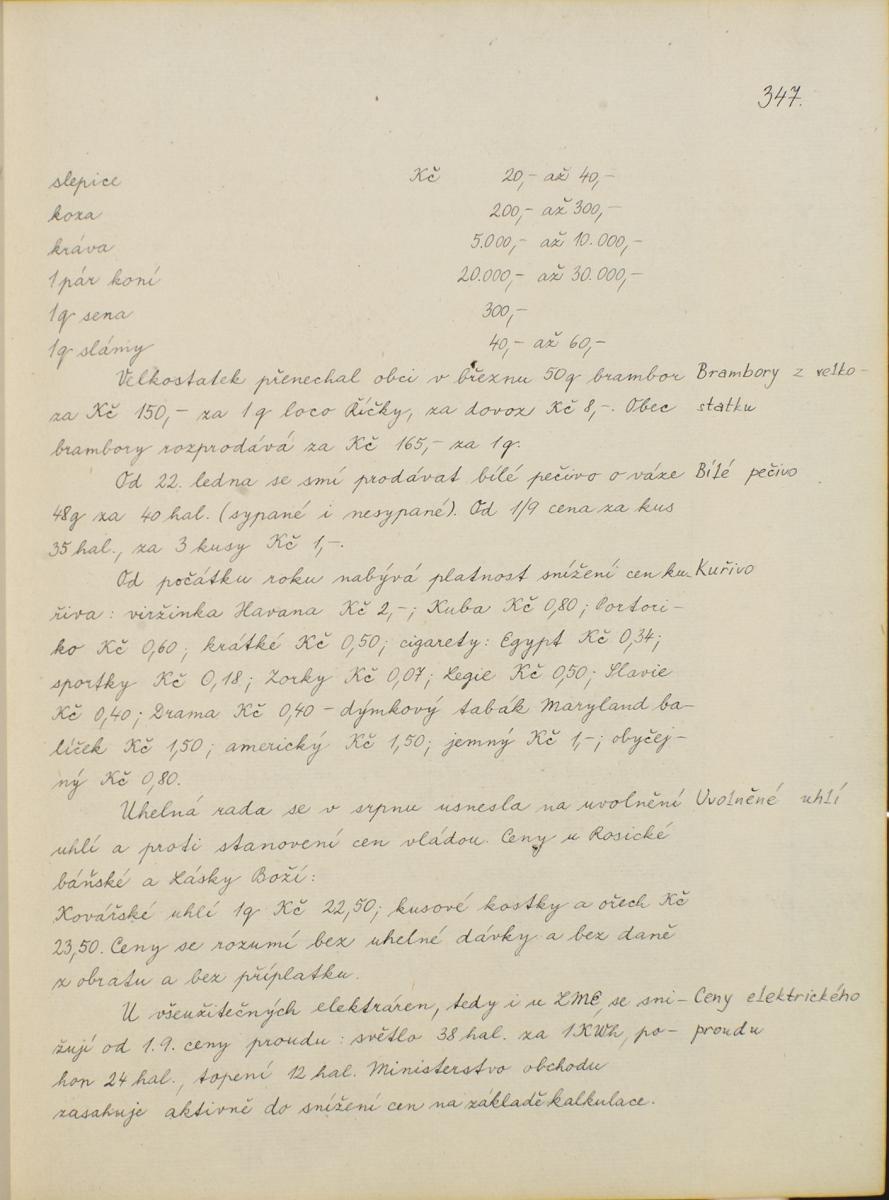 347.
slepice Kč 20,- až 40,-
koza 200,- až 300,-
kráva 5.000,- až 10.000,-
1 pár koní 20.000,- až 30.000,-
1q sena 300,-
1q slámy 40,- až 60,-
Velkostatek přenechal obci v březnu 50q brambor Brambory z velko-
za Kč 150,- za 1q loco Říčky, za dovoz Kč 8,-. Obec statku
brambory rozprodává za Kč 165,- za 1q.
Od 22. ledna se smí prodávat bílé pečivo o váze Bílé pečivo
48g za 40 hal. (sypané i nesypané). Od 1/9 cena za kus
35 hal., za 3 kusy Kč 1,-.
Od počátku roku nabývá platnost snížení cen ku- Kuřivo
řiva: viržinka Havana Kč 2,-; Kuba Kč 0,80; Portori-
ko Kč 0,60; krátké Kč 0,50; cigarety: Egypt Kč 0,34;
sportky Kč 0,18; Zorky Kč 0,07; Legie Kč 0,50; Slavie
Kč 0,40; Drama Kč 0,40 - dýmkový tabák Maryland ba-
líček Kč 1,50; americký Kč 1,50; jemný Kč 1,-; obyčej-
ný Kč 0,80.
Uhelná rada se v srpnu usnesla na uvolnění Uvolněné uhlí
uhlí a proti stanovení cen vládou. Ceny u Rosické
báňské a Lásky Boží:
Kovářské uhlí 1q Kč 22,50; kusové kostky a ořech Kč
23,50. Ceny se rozumí bez uhelné dávky a bez daně
z obratu a bez příplatku.
U všeužitečných elektráren, tedy i u ZME, se sni- Ceny elektrického
žují od 1.9. ceny proudu: světlo 38 hal. za 1 KWh, po- proudu
hon 24 hal., topení 12 hal. Ministerstvo obchodu
zasahuje aktivně do snížení cen na základě kalkulace.